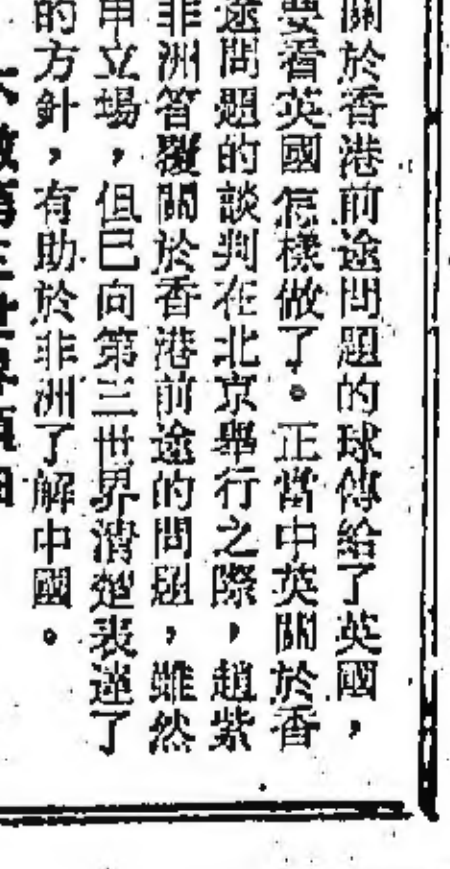 關於香港前途問題的球傳給了英國，
要看英國怎樣做了。正當中英關於香
途問題的談判在北京舉行之際，趙紫
非洲答覆關於香港前途的問題，雖然
申立場，但已向第三世界清楚表達了
的方針，有助於非洲了解中國。
第三世界